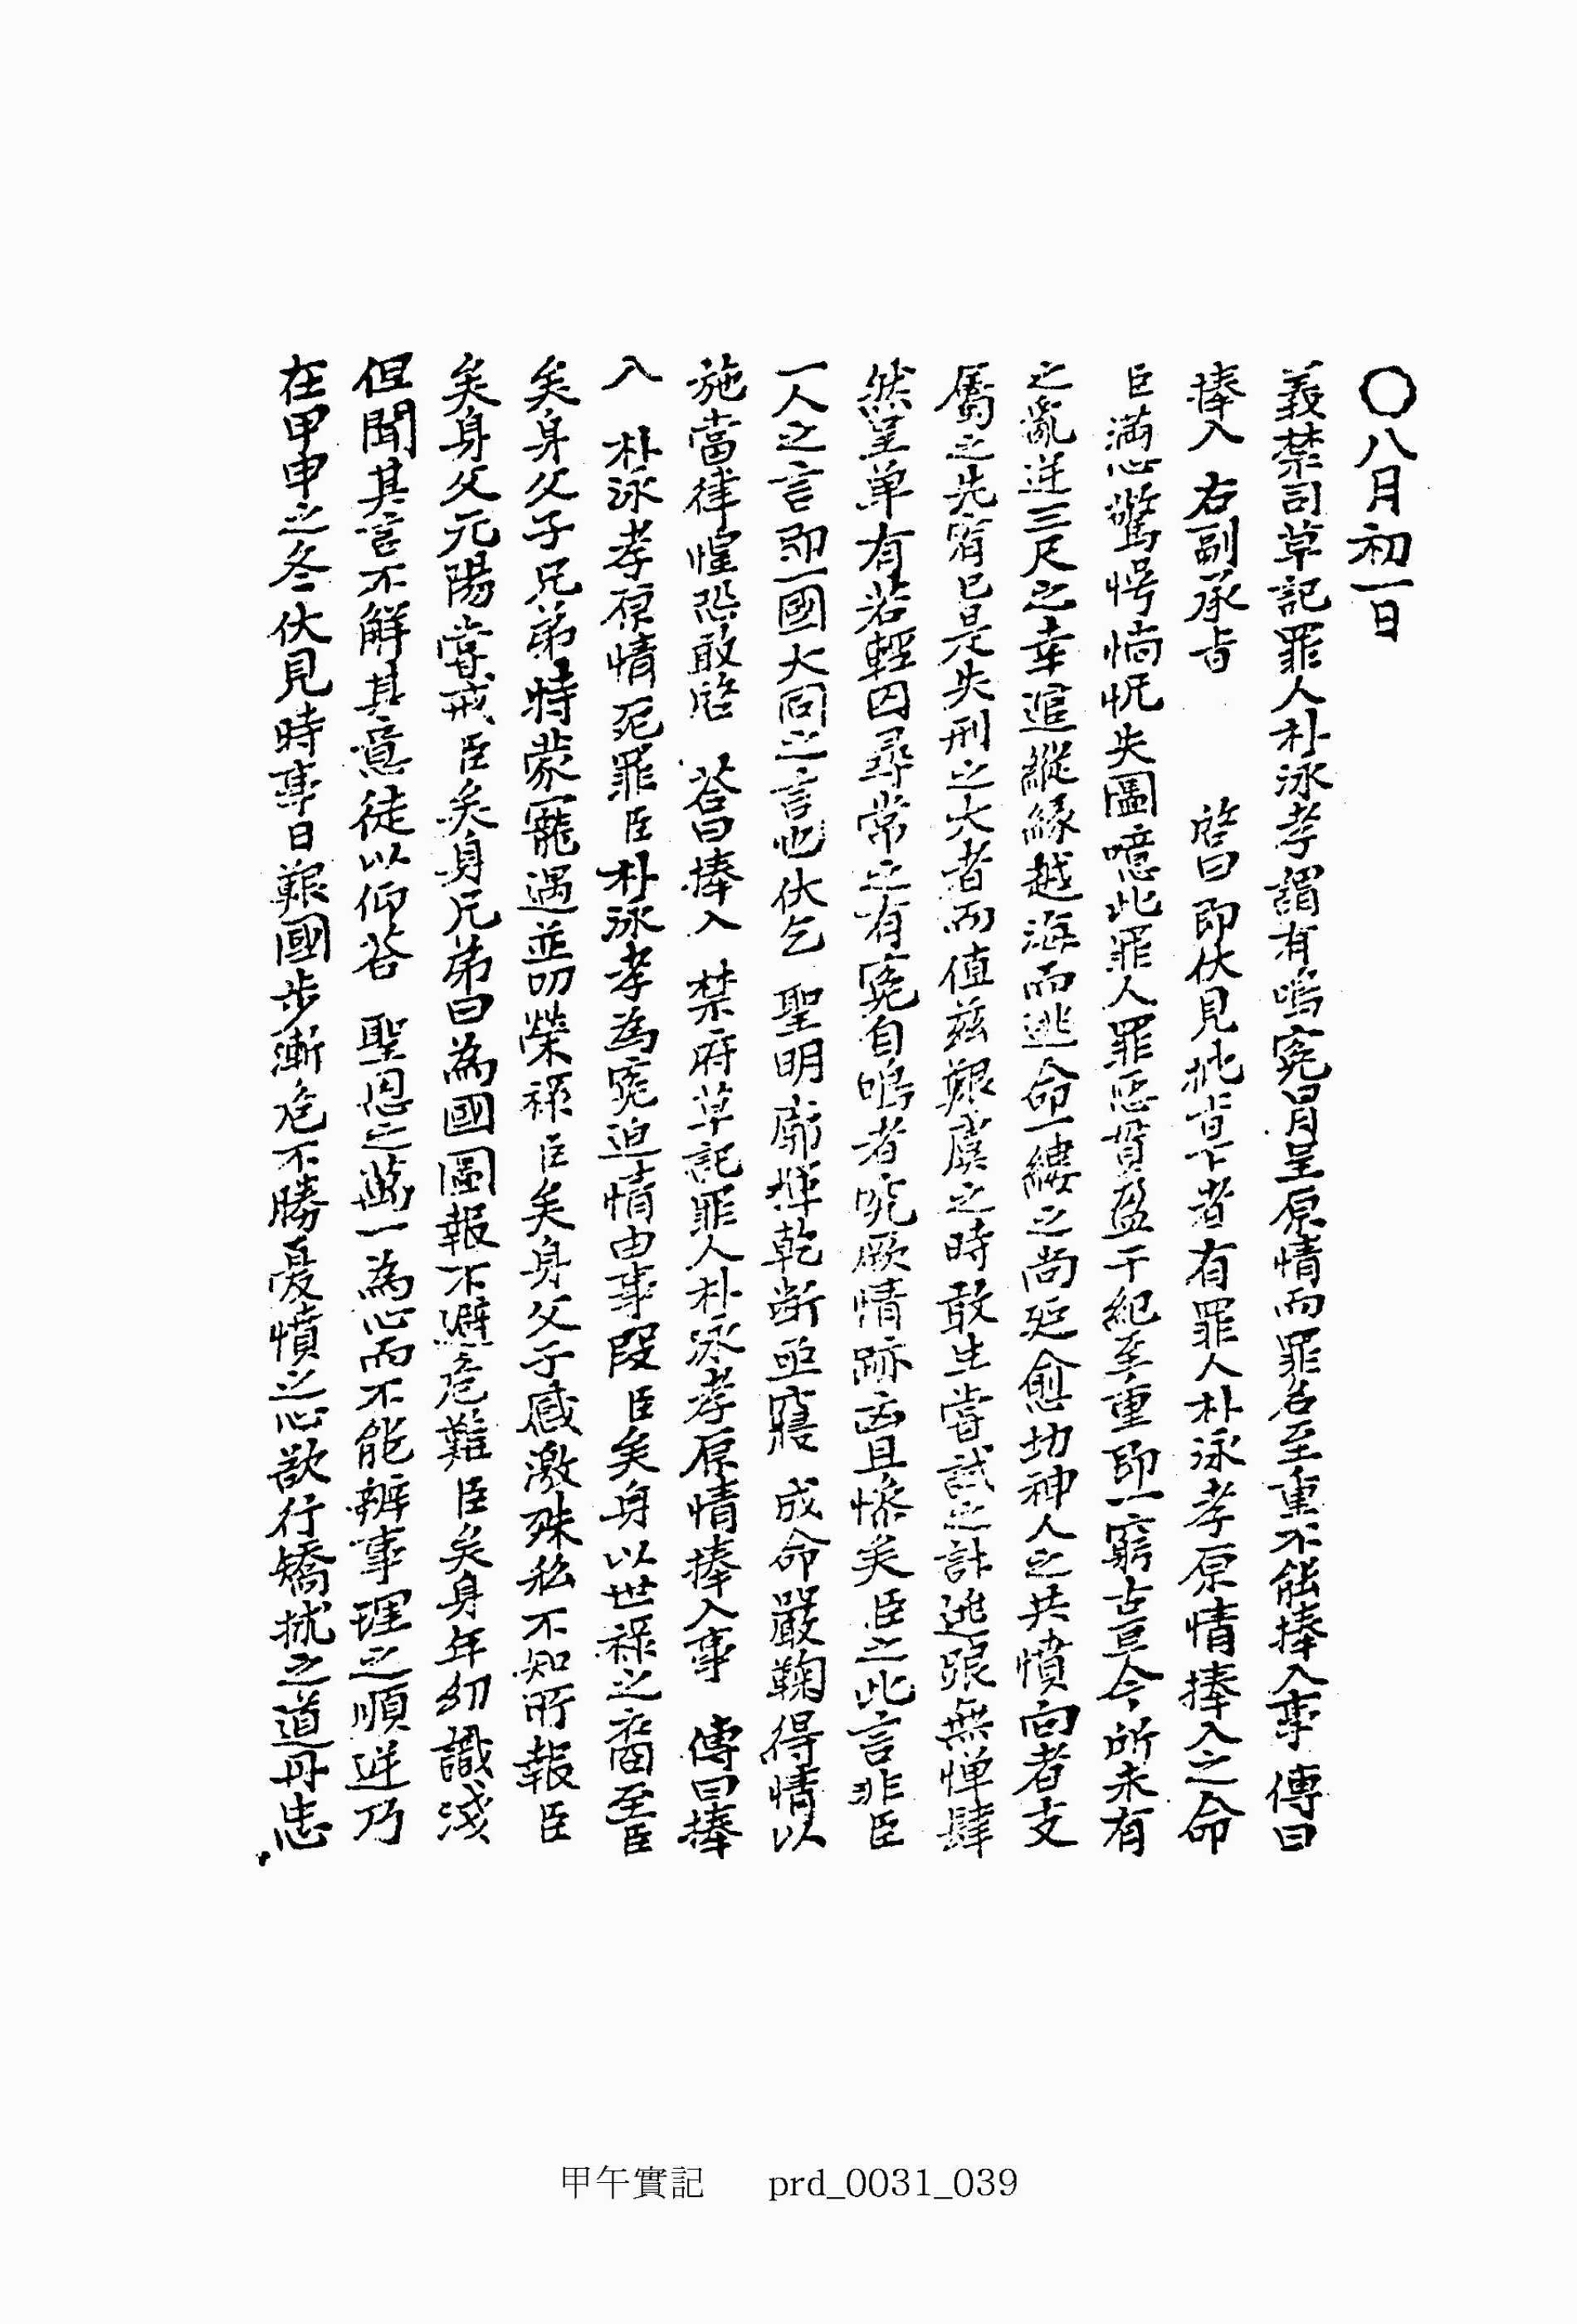 ○八月初一日
義禁司草記罪人朴泳孝謂有鳴寃冒呈原情而罪名至重不能捧入事 傳曰
捧入 右副承旨 啓曰卽伏見批旨下者有罪人朴泳孝原情捧入之命
臣滿心驚愕惝怳失圖噫此罪人罪惡貫盈干紀至重卽一窮古亘今所未有
之亂逆三尺之幸逭縱緣越海而逃命一縷之尚延愈切神人之共憤向者支
屬之先宥已是失刑之大者而値玆艱虞之時敢生嘗試之計逃踉無憚肆
然呈单有若輕囚尋常之有寃自鳴者究厥情跡凶且憯矣臣之此言非臣
一人之言卽一國大同之言也伏乞 聖明廓揮乾斷亟寢 成命嚴鞫得情以
施當律惶恐敢啓 答曰捧入 禁府草記罪人朴泳孝原情捧入事 傳曰捧
入 朴泳孝原情死罪臣朴泳孝為寃迫情由事段臣矣身以世祿之裔至臣
矣身父子兄弟特蒙寵遇並叨榮祿臣矣身父子感激殊私不知所報臣
矣身父元陽嘗戒臣矣身兄弟曰為國圖報不避危難臣矣身年幼識淺
但聞其言不解其意徒以仰答 聖恩之萬一為心而不能辨事理之順逆乃
在甲申之冬伏見時事日艱國步漸危不勝憂憤之心欲行矯捄之道丹忠
甲午實記 prd_0031_039